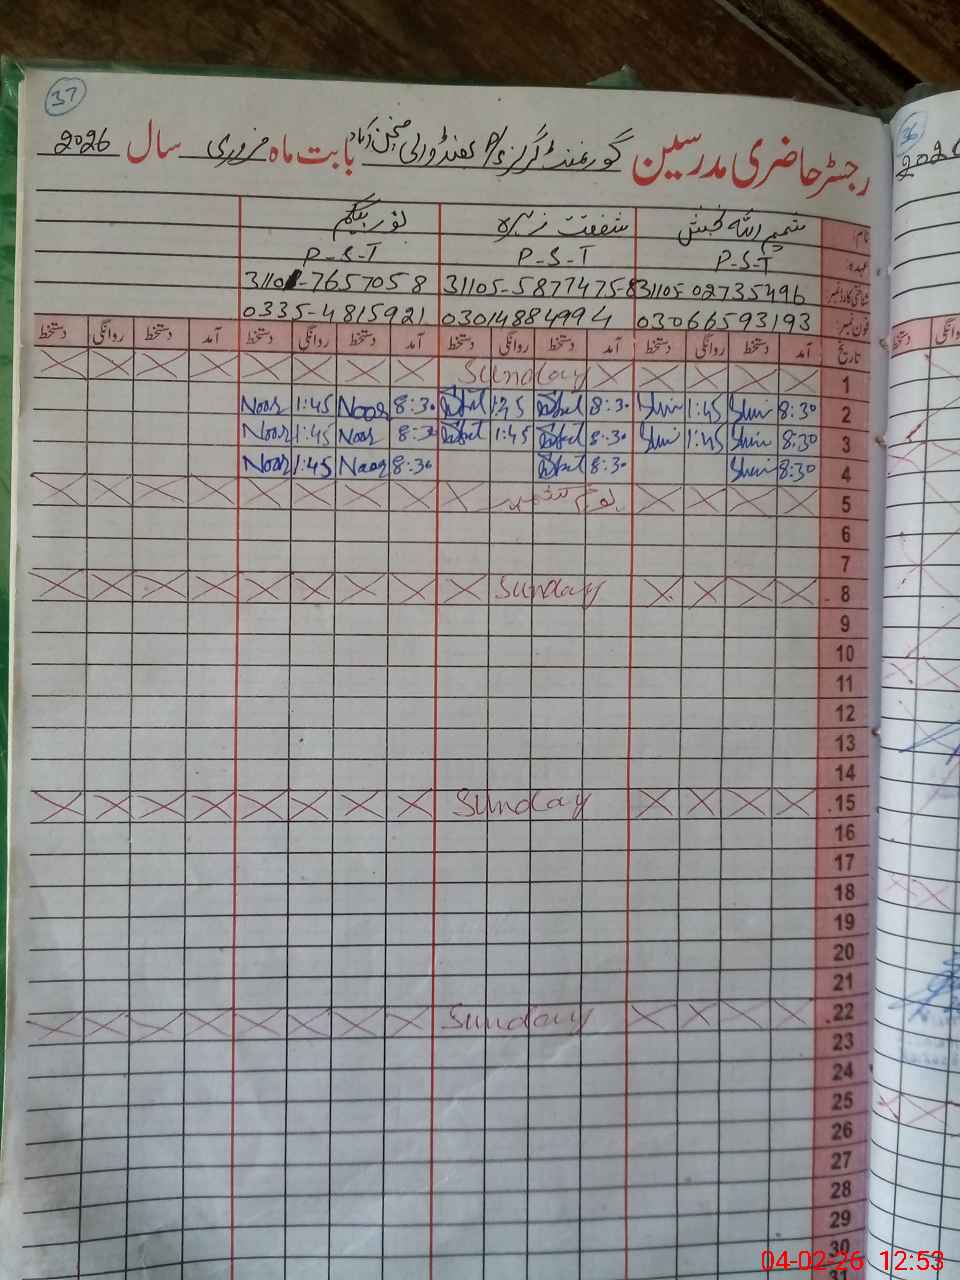 37
رجسٹر حاضری مدرسین گورنمنٹ گرلز P/S جھنڈو والی منچن آباد بابت ماہ فروری سال 2026
نام: شمیم اللہ بخش شفقت زہرہ نور بیگم
عہدہ: P-S-T P-S-T P-S-T
شناختی کارڈ نمبر 31105-02735496 31105-5877475-8 3110-7657058
فون نمبر: 03066593193 03014884994 0335-4815921
تاریخ آمد دستخط روانگی دستخط آمد دستخط روانگی دستخط آمد دستخط روانگی دستخط آمد دستخط روانگی دستخط
1 Sunday
2 8:30 1:45 8:30 1:45 8:30 Noor 1:45 Noor
3 8:30 1:45 8:30 1:45 8:30 Noor 1:45 Noor
4 8:30 8:30 8:30 Noor 1:45 Noor
5 یوم کشمیر
6
7
8 Sunday
9
10
11
12
13
14
15 Sunday
16
17
18
19
20
21
22 Sunday
23
24
25
26
27
28
29
30
31
36
دستخط
04-02-26 12:53